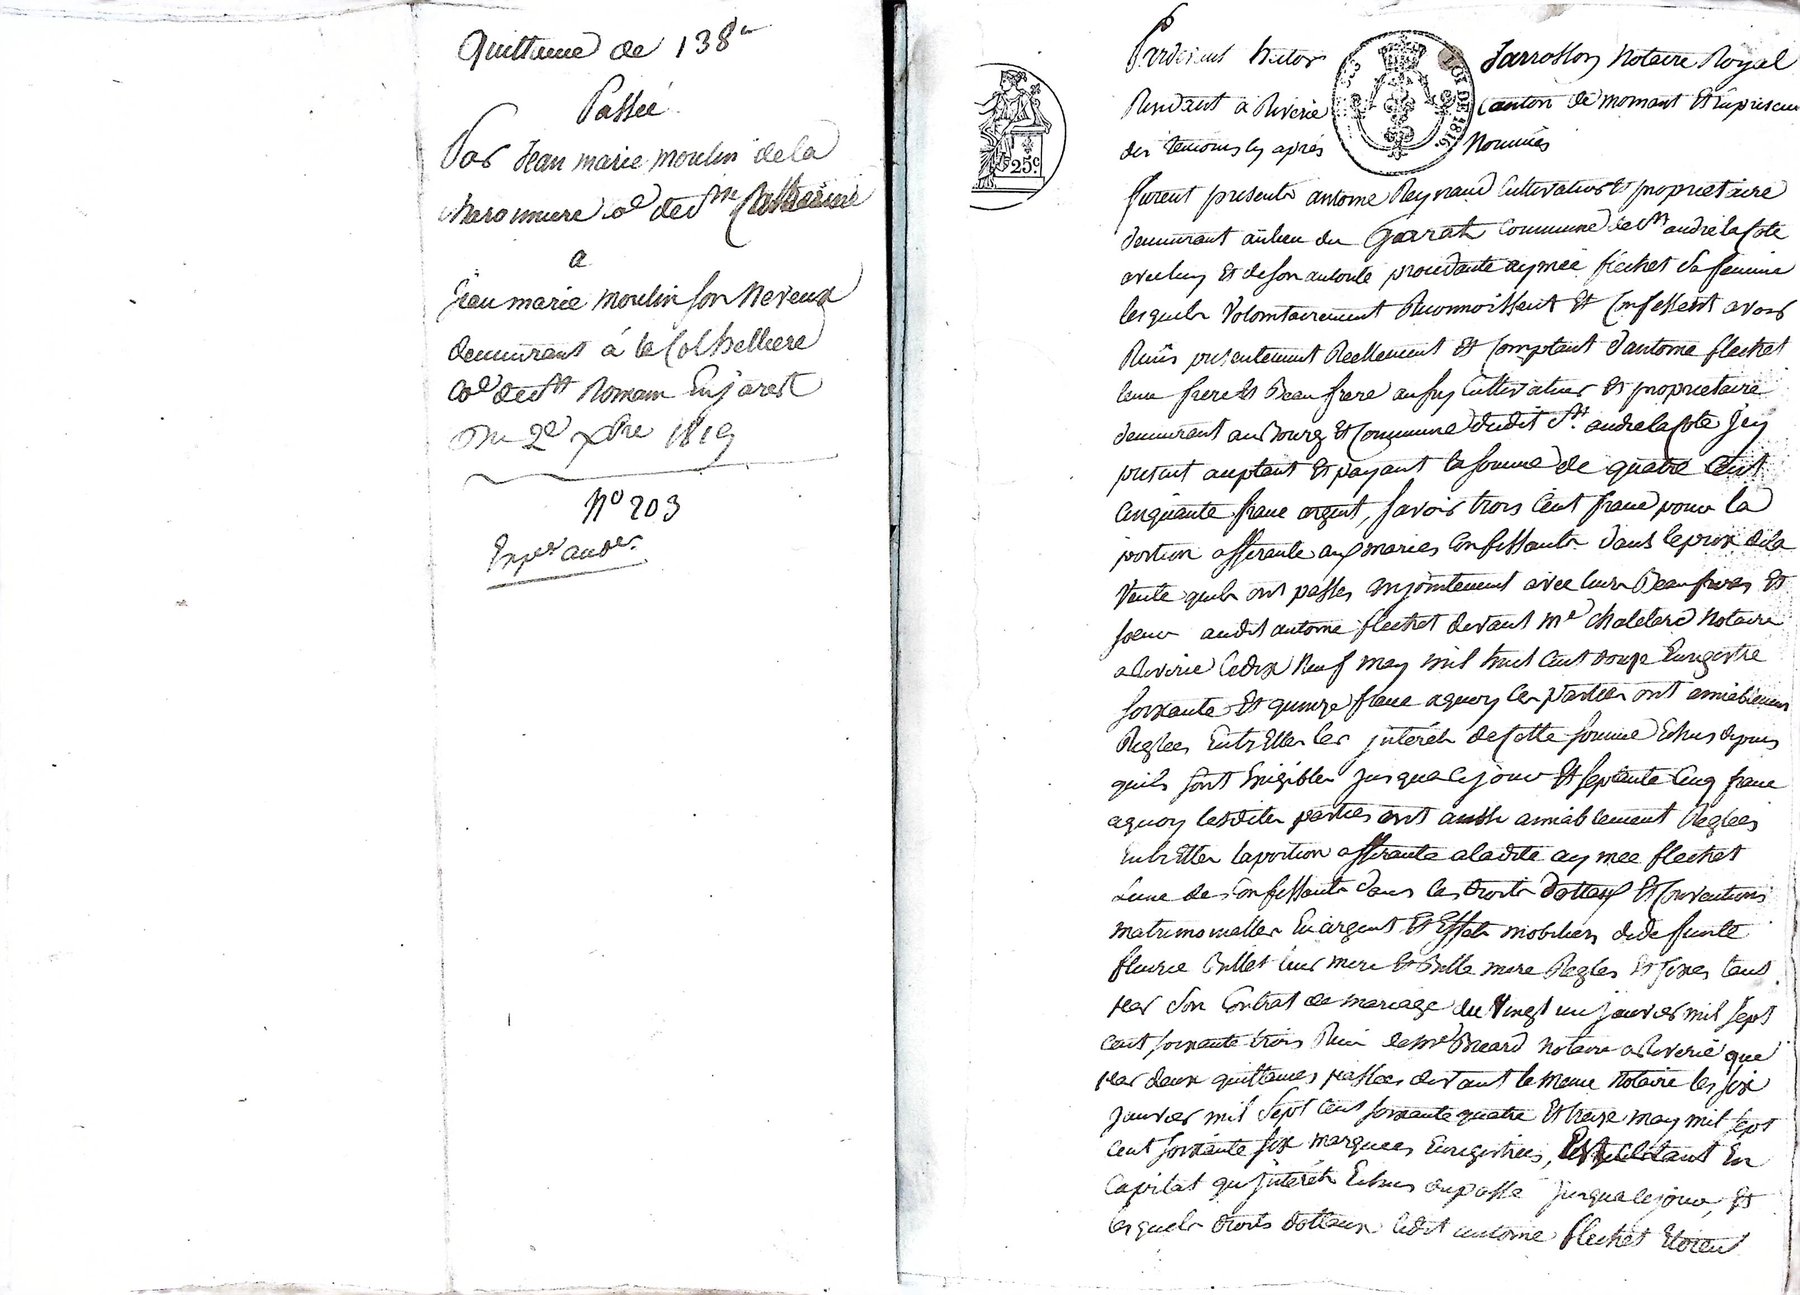 Quittance de 138 #
Passée
Par Jean marie moulin de la
charonniere Coe de Ste Catherine
a
Jean marie moulin son Neveux
demeurant á la Colhelliere
Coe de St Romain En jarest
Du 2e xbre 1819
No 203
Expon aud.
25c.
LOI DE 1816
Pardevant hector Jarrosson Notaire Royal
Residant à Riverie Canton de mornant Et En presence
des temoins cy aprés Nommés
furent presents antoine Reynaud Cultivateur Et proprietaire
demeurant au lieu du Garat Commune de St andré la Cote
avec luy Et de son autorité procedante aymée flechet Sa femme
lesquels Volontairement Reconnoissent Et Confessent avoir
Reçus presentement Réellement Et Comptant d'antoine flechet
leur frere Et Beau frere aussy Cultivateur Et proprietaire
demeurant au Bourg Et Commune dudit St. andré la Cote Icy
present acceptant Et payant la somme de quatre Cent
Cinquante franc argent, Savoir trois Cent franc pour la
portion afferante aux mariés Confessants dans le prix de la
Vente quils ont passés Conjointement avec leurs Beau freres Et
soeur audit antoine flechet devant Me Chatelard Notaire
a Riverie le dix Neuf may mil huit Cent douze Enregistré
soixante Et quinze franc a quoy les parties ont amiablement
Reglées Entr'Elles les jnterêts de Cette somme Echus depuis
quils sont Exigibles jusqua Ce jour Et septante Cinq franc
a quoy lesdites parties ont aussi amiablement Reglées
Entr'Elles la portion afferante a ladite aymée flechet
l'une des Confessants dans les droits dottaux Et Conventions
matrimonialles En argent Et Effets mobiliers de defunte
fleurie Billet leur mere Et Belle mere Reglés Et fixés tant
par Son Contrat de mariage du Vingt un janvier mil sept
Cent soixante trois Reçu de Me Bréard Notaire a Riverie que
par deux quittances passées devant le meme Notaire les six
janvier mil Sept Cent soixante quatre Et treize may mil sept
Cent soixante six marquées Enregistrées, tant En
Capital qu'jnterêts Echus du passé jusqua ce jour, Et
lesquels droits dottaux ledit antoine flechet Etoient